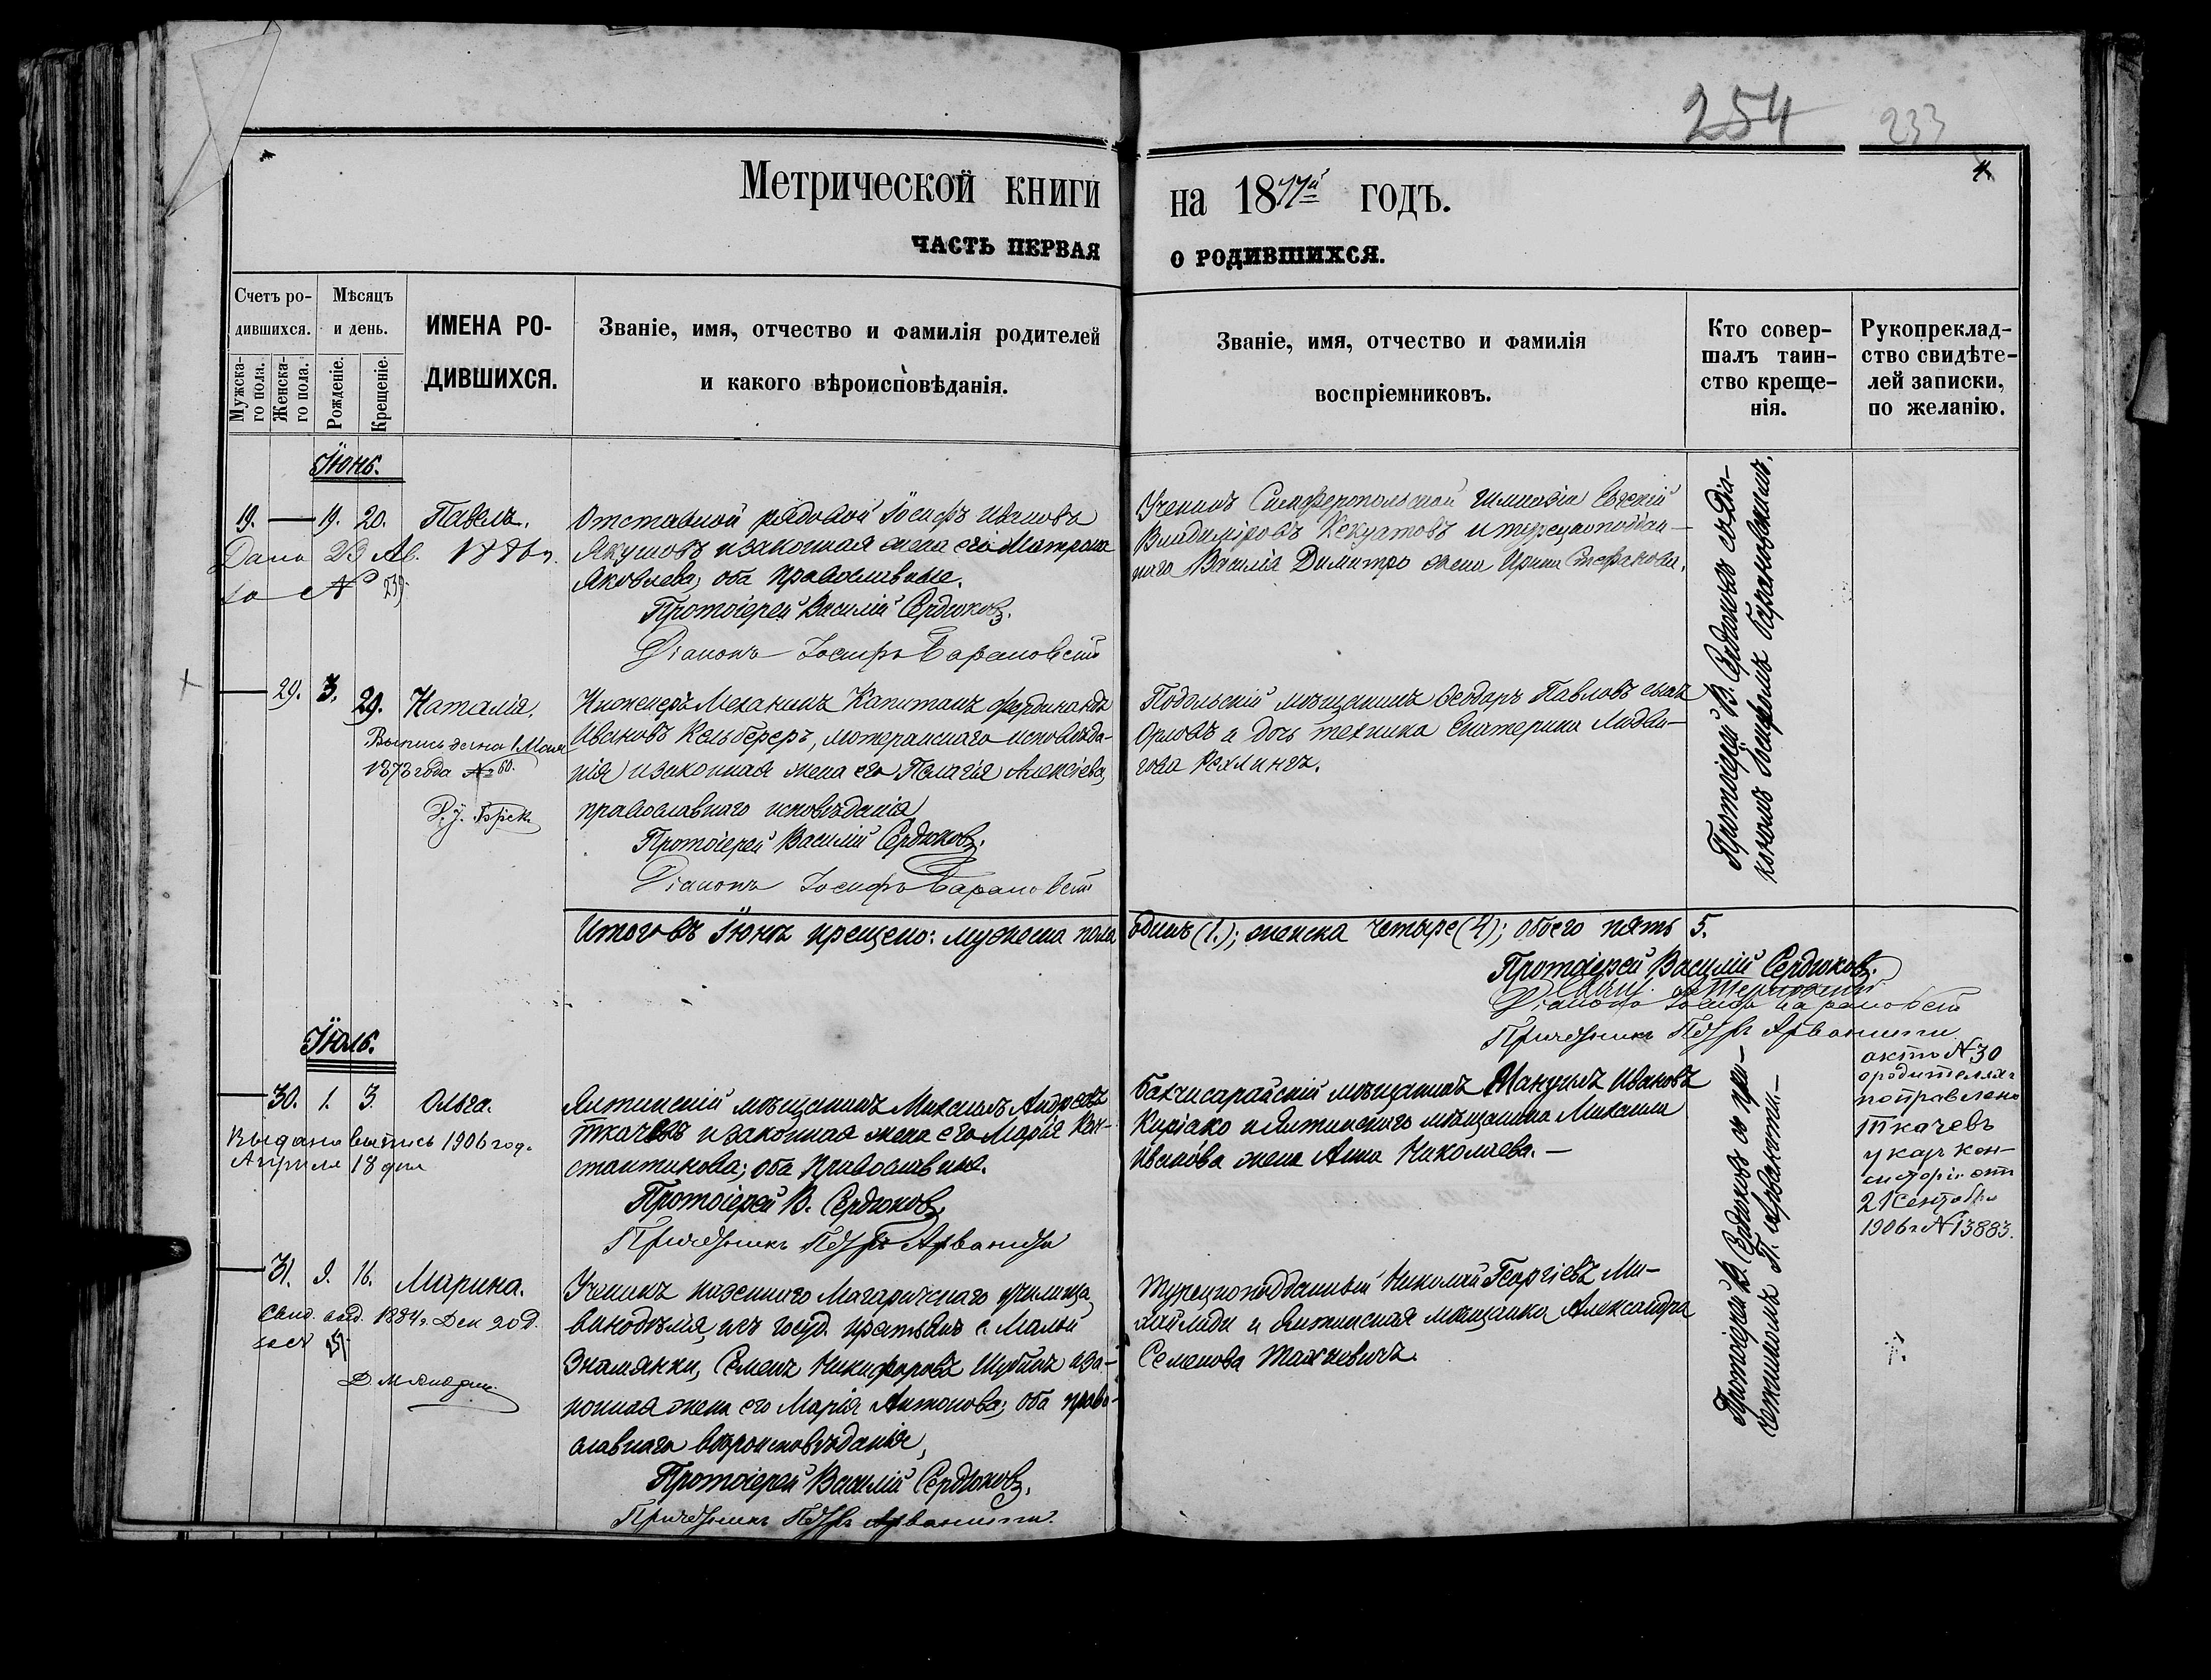 254 233
Метрической книги на 1877й годъ.
ЧАСТЬ ПЕРВАЯ О РОДИВШИХСЯ.
Счетъ ро-
дившихся.
Мѣсяцъ
и день.
Мужска-
го пола.
Женска-
го пола.
Рожденіе.
Крещеніе.
ИМЕНА РО-
ДИВШИХСЯ.
Званіе, имя, отчество и фамилія родителей
и какого вѣроисповѣданія.
Званіе, имя, отчество и фамилія
воспріемниковъ.
Кто совер-
шалъ таин-
ство креще-
нія.
Рукоприклад-
ство свидѣте-
лей записки,
по желанію.
Іюнь.
19. 19. 20. Павелъ.
Дано 23 Ав.
за №
Отставной рядовой Іосифъ Ивановъ
Якушовъ и законная жена его Матрона
Яковлева, оба православные.
Протоіерей Василій Сердюковъ.
Діаконъ Іосифъ Барановскій
Ученикъ Симферопольской гимназіи Евгеній
Владиміровъ Кекуатовъ и турецкоподдан-
наго Василія Димитро жена Ирина Стефанова.
Протоіерей В. Сердюковъ съ діа-
кономъ Іосифомъ Барановскимъ.
29. 3. 29. Наталія.
Выпись дана 1 Мая
1878 года № 60.
Инженеръ Механикъ Капитанъ Фердинандъ
Ивановъ Кельбереръ, лютеранскаго исповѣда-
нія и законная жена его Пелагія Алексіева,
православнаго исповѣданія
Протоіерей Василій Сердюковъ.
Діаконъ Іосифъ Барановскій
Подольскій мѣщанинъ Ѳеодоръ Павловъ сынъ
Орловъ и дочь техника Екатерина Людви-
гова Рехлингъ.
Итого въ Іюнѣ крещено: мужеска пола одинъ (1.); женска четыре (4); обоего пять 5.
Протоіерей Василій Сердюковъ.
Діаконъ Іосифъ Барановскій
Причетникъ Петръ Арванити
Іюль.
30. 1. 3. Ольга.
Выдана выпись 1906 год.
Апрѣля 18 дня
Ялтинскій мѣщанинъ Михаилъ Андреевъ
Ткачевъ и законная жена его Марія Кон-
стантинова; оба православные.
Протоіерей В. Сердюковъ.
Причетникъ Петръ Арванити
Бахчисарайскій мѣщанинъ Мануилъ Ивановъ
Киріако и Ялтинскаго мѣщанина Михаила
Иванова жена Анна Николаева.—
актъ № 30
о родителяхъ
поправлено
Ткачевъ
указъ кон-
систоріи отъ
21 Сентября
1906 г № 13883.
Протоіерей В. Сердюковъ съ при-
четникомъ П. Арванити.—
31. 9. 16. Марина.
Свид. выд. 1884 г. Дек 20 д.
Ученикъ казеннаго Магарачскаго училища
винодѣлія, изъ госуд. крестьянъ с. Малой
Знамянки, Семенъ Никифоровъ Шубинъ и за-
конная жена его Марія Антонова; оба право-
славнаго вѣроисповѣданія,
Протоіерей Василій Сердюковъ.
Причетникъ Петръ Арванити.
Турецкоподданный Николай Георгіевъ Ми-
хайлиди и Ялтинская мѣщанка Александра
Семенова Таххевичъ.